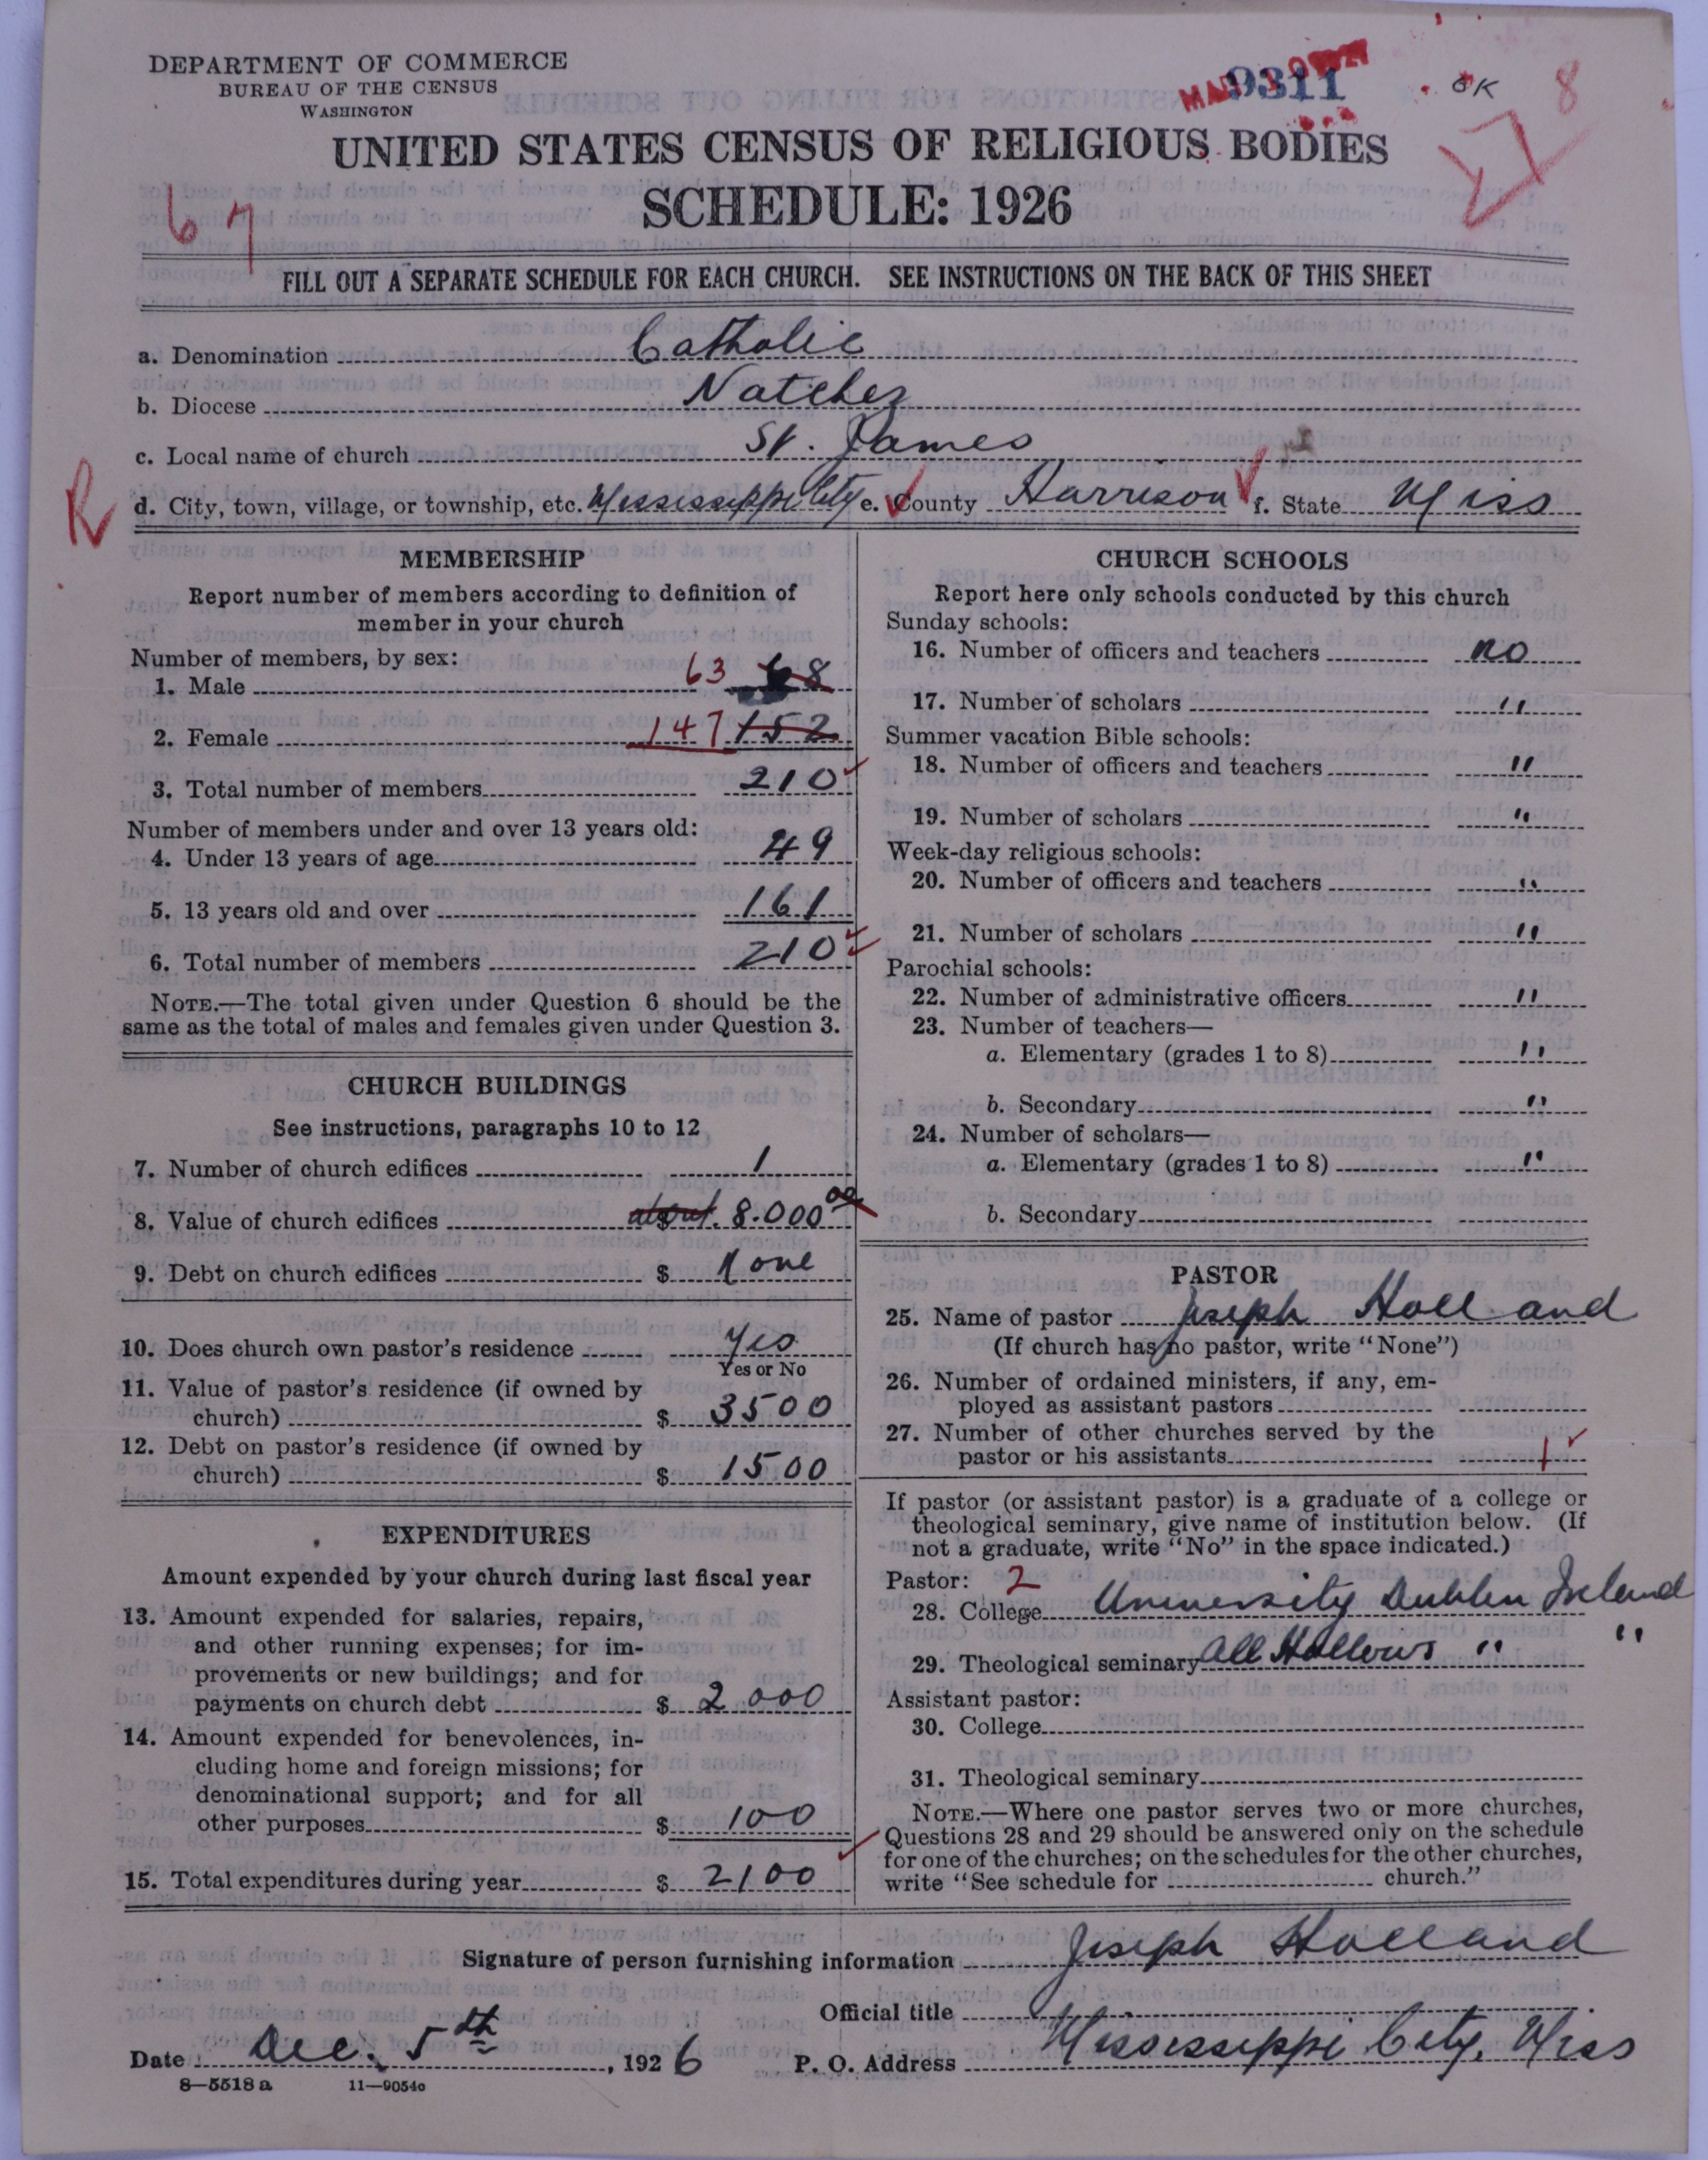 DEPARTMENT OF COMMERCE
BUREAU OF THE CENSUS
WASHINGTON
9311
OK
8
UNITED STATES CENSUS OF RELIGIOUS BODIES
SCHEDULE: 1926
67
FILL OUT A SEPARATE SCHEDULE FOR EACH CHURCH. SEE INSTRUCTIONS ON THE BACK OF THIS SHEET
a. Denomination Catholic
b. Diocese Natchez
c. Local name of church St. James
R
d. City, town, village, or township, etc. Mississippi City e. County Harrison f. State Miss
MEMBERSHIP
Report number of members according to definition of
member in your church
Number of members, by sex:
1. Male 63 68
2. Female 147 152
3. Total number of members 210
Number of members under and over 13 years old:
4. Under 13 years of age 49
5. 13 years old and over 161
6. Total number of members 210
NOTE.—The total given under Question 6 should be the
same as the total of males and females given under Question 3.
CHURCH BUILDINGS
See instructions, paragraphs 10 to 12
7. Number of church edifices 1
8. Value of church edifices about $ 8.000 00
9. Debt on church edifices $ None
10. Does church own pastor's residence Yes
Yes or No
11. Value of pastor's residence (if owned by
church) $ 3500
12. Debt on pastor's residence (if owned by
church) $ 1500
EXPENDITURES
Amount expended by your church during last fiscal year
13. Amount expended for salaries, repairs,
and other running expenses; for im-
provements or new buildings; and for
payments on church debt $ 2000
14. Amount expended for benevolences, in-
cluding home and foreign missions; for
denominational support; and for all
other purposes $ 100
15. Total expenditures during year $ 2100
CHURCH SCHOOLS
Report here only schools conducted by this church
Sunday schools:
16. Number of officers and teachers no
17. Number of scholars "
Summer vacation Bible schools:
18. Number of officers and teachers "
19. Number of scholars "
Week-day religious schools:
20. Number of officers and teachers "
21. Number of scholars "
Parochial schools:
22. Number of administrative officers "
23. Number of teachers—
a. Elementary (grades 1 to 8) "
b. Secondary "
24. Number of scholars—
a. Elementary (grades 1 to 8) "
b. Secondary
PASTOR
25. Name of pastor Joseph Holland
(If church has no pastor, write "None")
26. Number of ordained ministers, if any, em-
ployed as assistant pastors
27. Number of other churches served by the
pastor or his assistants 1
If pastor (or assistant pastor) is a graduate of a college or
theological seminary, give name of institution below. (If
not a graduate, write "No" in the space indicated.)
Pastor: 2
28. College University Dublin Ireland
29. Theological seminary All Hallows " "
Assistant pastor:
30. College
31. Theological seminary
NOTE.—Where one pastor serves two or more churches,
Questions 28 and 29 should be answered only on the schedule
for one of the churches; on the schedules for the other churches,
write "See schedule for church."
Signature of person furnishing information Joseph Holland
Official title
Date Dec. 5th, 1926 P. O. Address Mississippi City, Miss
8—5518 a 11—9054c